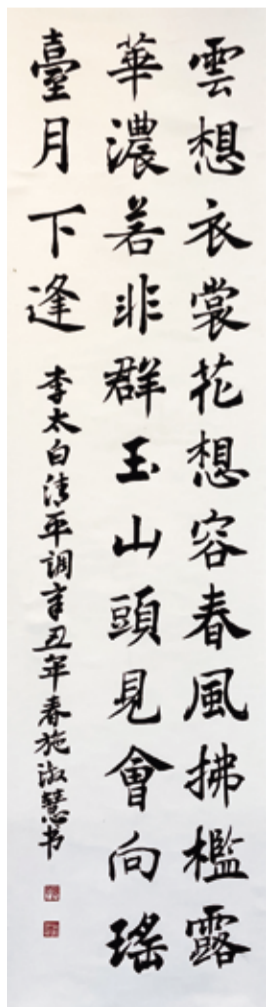 雲想衣裳花想容春風拂檻露
華濃若非群玉山頭見會向瑤
臺月下逢
李太白清平調辛丑年春施淑慧书